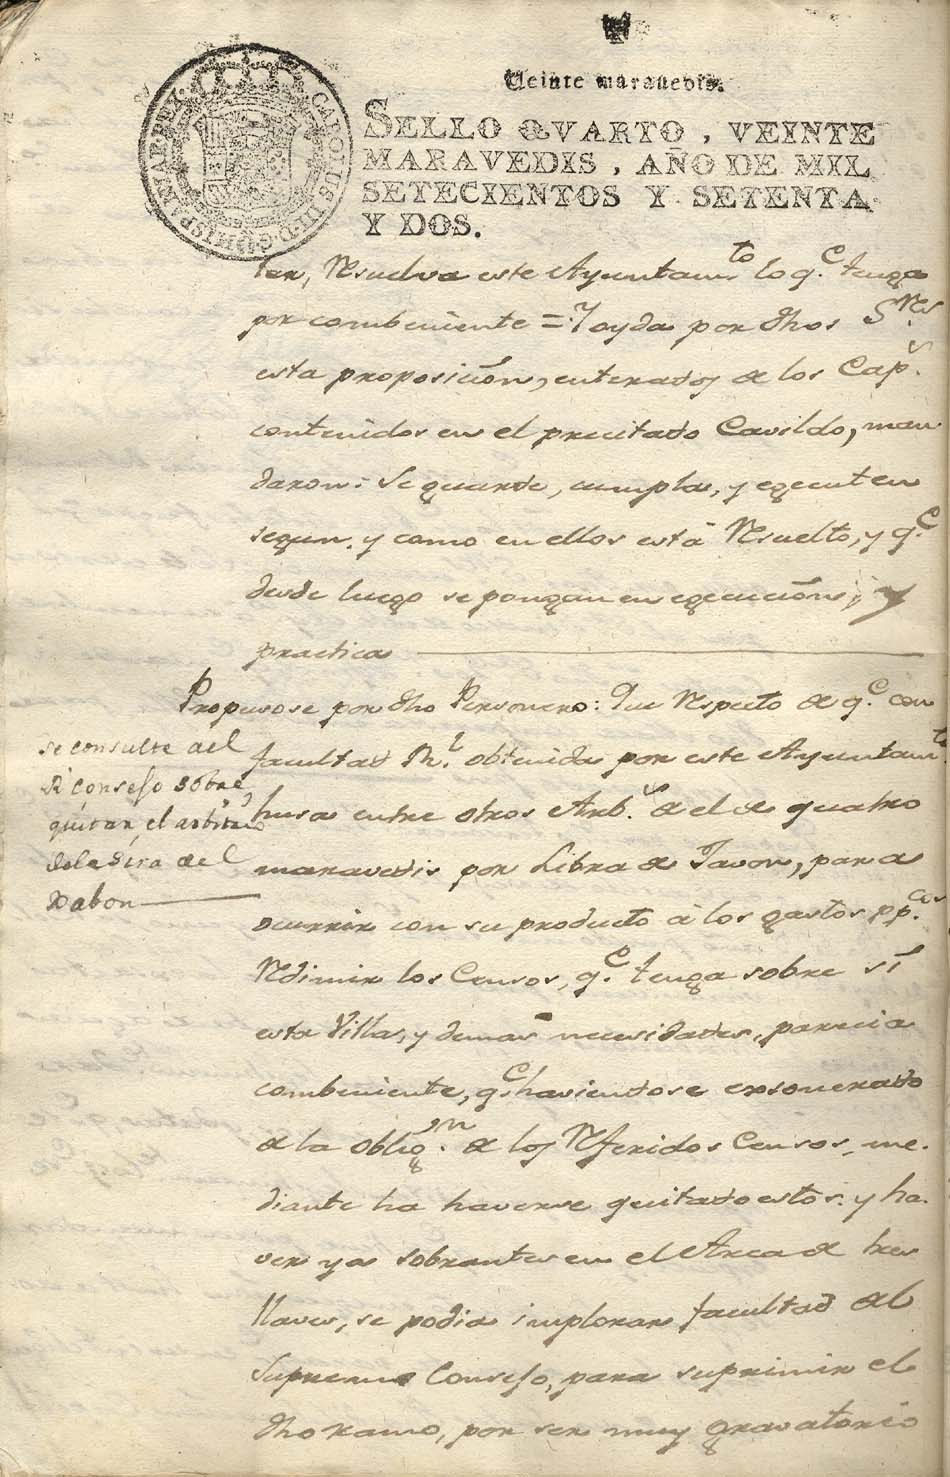 Veinte maravedis.
SELLO QVARTO, VEINTE
MARAVEDIS, AÑO DE MIL
SETECIENTOS Y SETENTA
Y DOS.
CAROLUS III D. G. HISPANIAR. REX.
tar, Resuelva este Ayuntam.to lo q.e tenga
por combeniente = Y oyda por dhos S.res
esta proposición, enterados de los Cap.s
contenidos en el precitado Cavildo, man
daron: Se guarde, cumpla, y egecuten
segun, y como en ellos está Resuelto, y q.e
desde luego se pongan en egecución, y
practica
Propusose por dho Personero: Que Respeto de q.e con
facultad R.l obtenida por este Ayuntam.to
husa entre otros Arb.s de el de quatro
maravedis por Libra de Javon, para
ocurrir con su producto à los gastos pp.cos
Redimir los Censos, q.e tenga sobre sí
esta Villa, y demas necesidades, parecia
combeniente, q.e haviendose exsonerado
de la oblig.on de los Referidos Censos, me-
diante ha haverse quitado estos, y ha-
ver ya sobrantes en el Arca de tres
llaves, se podia implorar facultad del
Supremo Consejo, para suprimir el
dho ramo, por ser muy gravatorio
se consulte al
R.l consejo sobre
quitar el arbitrio
dela sisa del
Xabon